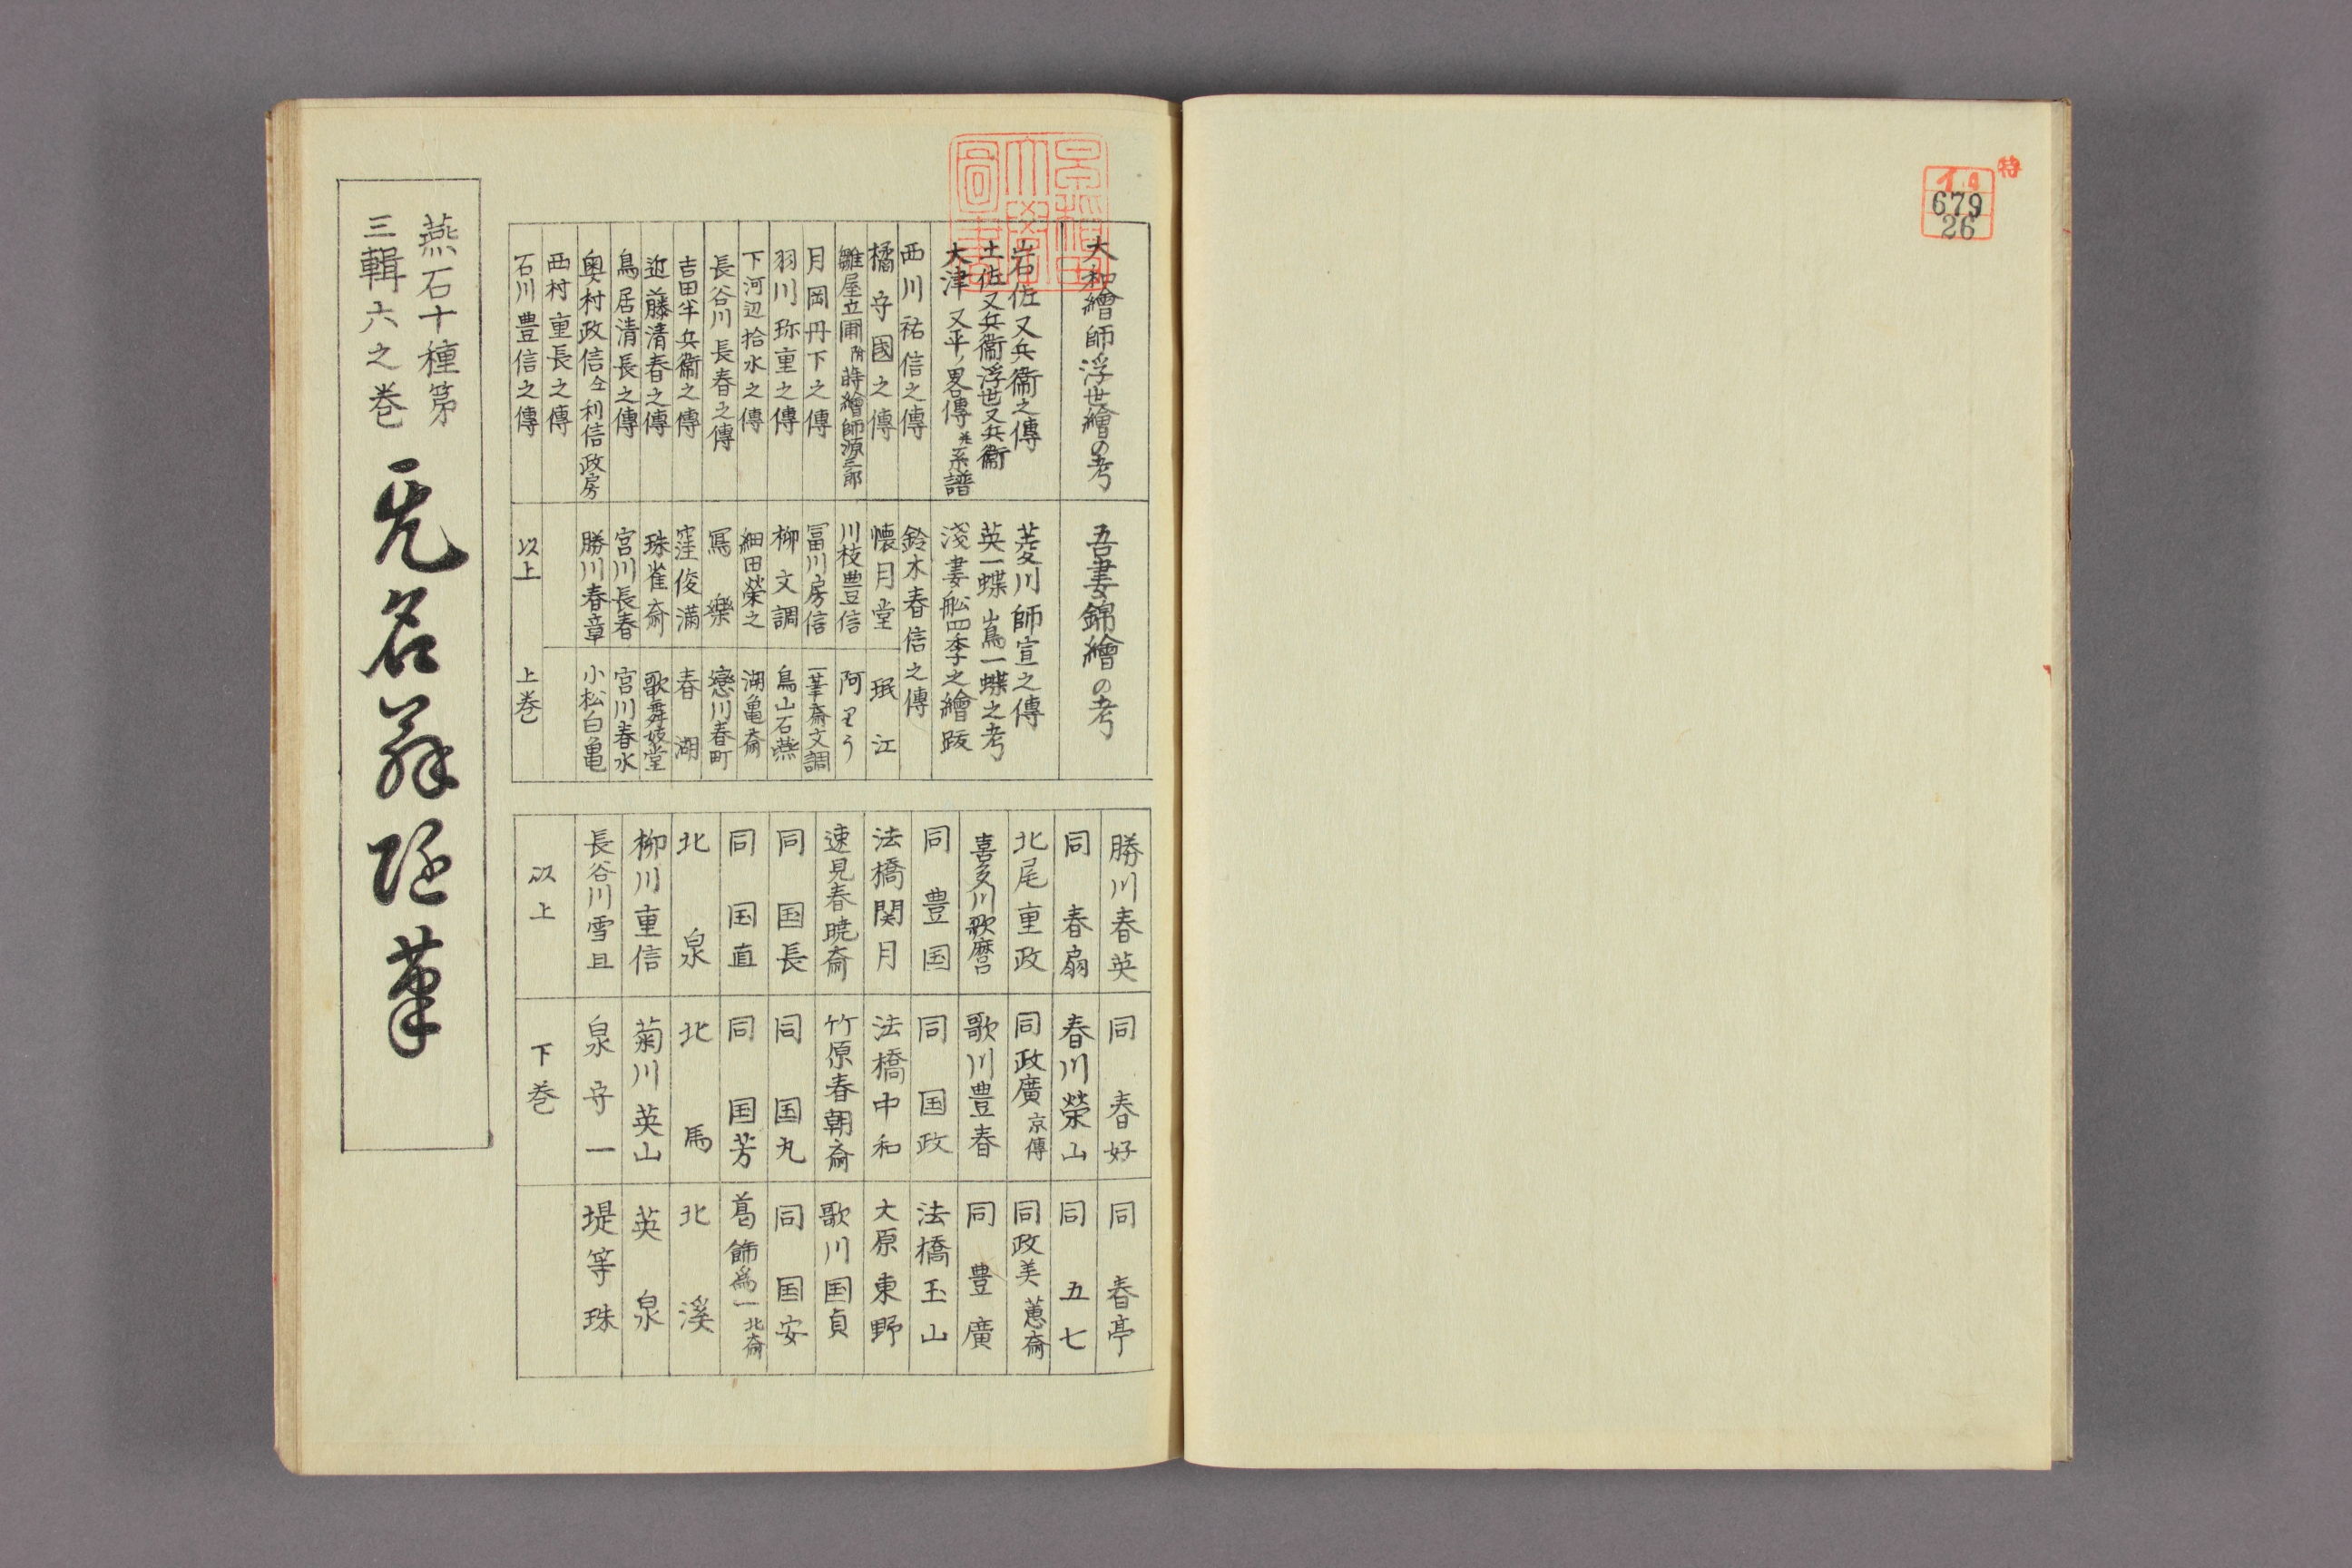 特
イ4
679
26
大和繪師浮世繪の考
岩佐又兵衞之傳
土佐又兵衞浮世又兵衞
大津又平ノ畧傳並系譜
西川祐信之傳
橘守國之傳
雛屋立圃附蒔繪師源三郎
月岡丹下之傳
羽川珎重之傳
下河辺拾水之傳
長谷川長春之傳
吉田半兵衞之傳
近藤清春之傳
鳥居清長之傳
奥村政信仝利信政房
西村重長之傳
石川豊信之傳
吾妻錦繪の考
菱川師宣之傳
英一蝶嶌一蝶之考
淺妻舩四季之繪跋
鈴木春信之傳
懐月堂 珉江
川枝豊信 阿里う
冨川房信 一筆斎文調
柳文調 鳥山石燕
細田榮之 湖亀斎
寫樂 戀川春町
窪俊満 春湖
珠雀斎 歌舞妓堂
宮川長春 宮川春水
勝川春章 小松白亀
以上 上巻
勝川春英 同春好 同春亭
同春扇 春川榮山 同五七
北尾重政 同政廣京傳 同政美蕙斎
喜多川歌麿 歌川豊春 同豊廣
同豊国 同国政 法橋玉山
法橋関月 法橋中和 大原東野
速見春暁斎 竹原春朝斎 歌川国貞
同国長 同国丸 同国安
同国直 同国芳 葛飾為一北斎
北泉 北馬 北溪
柳川重信 菊川英山 英泉
長谷川雪旦 泉守一 堤等珠
以上 下巻
燕石十種第
三輯六之巻
无名翁随筆